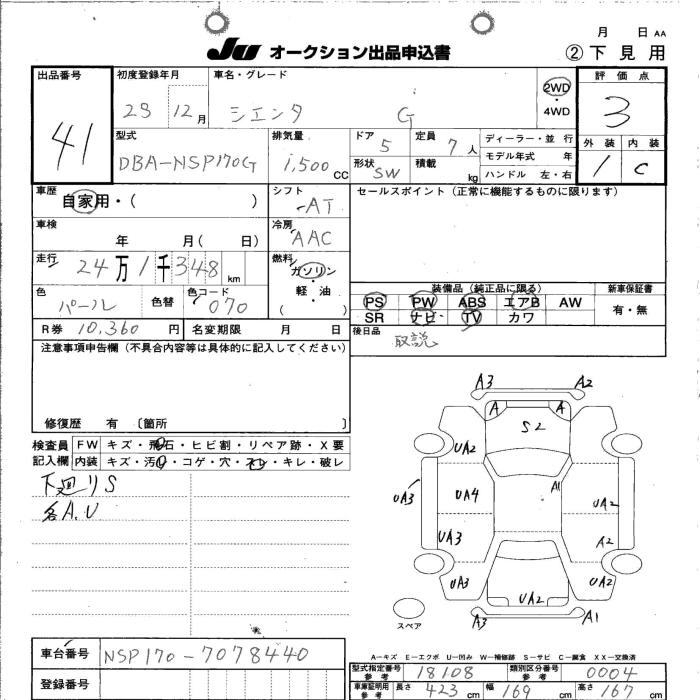 月 日 AA
JU オークション出品申込書 ② 下見用
出品番号 初度登録年月 車名・グレード 評価点
41 28 12月 シエンタ G 2WD・4WD 3
型式 排気量 ドア 定員 ディーラー・並行 外装 内装
DBA-NSP170G 1,500CC 5 7人 モデル年式 年 1 C
形状 SW 積載 kg ハンドル 左・右
車歴 シフト セールスポイント(正常に機能するものに限ります)
自家用・( ) AT
車検 冷房
年 月( 日) AAC
走行 燃料
24万1千348km ガソリン・軽油
色 色コード ( )
パール 色替 070
装備品(純正品に限る) 新車保証書
PS PW ABS エアB AW 有・無
SR ナビ TV カワ
R券 10,360円 名変期限 月 日 後日品
取説
注意事項申告欄(不具合内容等は具体的に記入してください)
修復歴 有 〔箇所 〕
検査員 FW キズ・飛石・ヒビ割・リペア跡・X要
記入欄 内装 キズ・汚レ・コゲ・穴・スレ・キレ・破レ
下廻りS
各A.U
A3 A2
A A
S2
UA2
A1
UA3 UA4 UA2
UA3 A2
UA3 UA2 UA2
A3 A1
スペア
A-キズ E-エクボ U-凹み W-補修跡 S-サビ C-腐食 XX-交換済
車台番号 NSP170-7078440
登録番号
型式指定番号 参考 18108 類別区分番号 参考 0004
車庫証明用 参考 長さ 423cm 幅 169cm 高さ 167cm